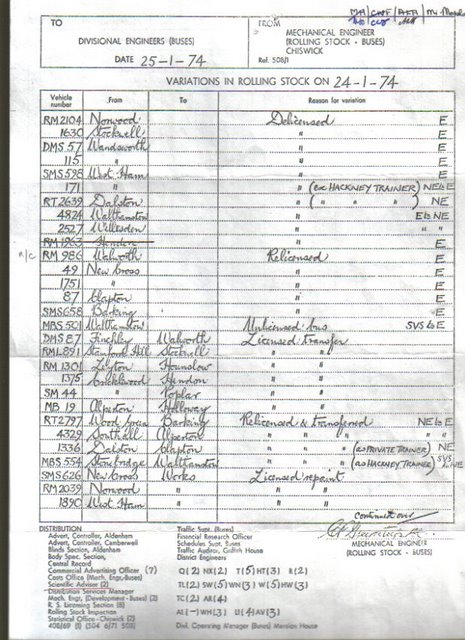 TO
FROM
DIVISIONAL ENGINEERS (BUSES)
MECHANICAL ENGINEER
(ROLLING STOCK - BUSES)
CHISWICK
DATE 25-1-74
Ref. 508/1
VARIATIONS IN ROLLING STOCK ON 24-1-74
Vehicle number From To Reason for variation
RM2104 Norwood Delicensed E
1630 Stockwell " E
DMS 57 Wandsworth " E
115 " " E
SMS 598 West Ham " E
171 " " (ex HACKNEY TRAINER) NE to E
RT2639 Dalston " ( " " ) NE
4824 Walthamstow " E to NE
2527 Willesden " " "
RM 1963 Hendon E
N/C RM 986 Walworth Relicensed E
49 New Cross " E
1751 " " E
87 Clapton " E
SMS658 Barking " E
MBS 501 Walthamstow Unlicensed bus SVS to E
DMS 87 Finchley Walworth Licensed transfer
RML891 Stamford Hill Stockwell " "
RM 1301 Leyton Hounslow " "
1375 Cricklewood Hendon " "
SM 44 " Poplar " "
MB 19 Alperton Holloway " "
RT2797 Wood Green Barking Relicensed & transferred NE to E
4329 Southall Alperton " " " " "
1336 Dalston Clapton " " (as PRIVATE TRAINER) NE
MBS 554 Stonebridge Walthamstow " " (as HACKNEY TRAINER) SVS to NE
SMS626 New Cross Works Licensed repaint
RM2039 Norwood " " "
1890 West Ham " " "
continued over
DISTRIBUTION
Advert, Controller, Aldenham
Advert, Controller, Camberwell
Blinds Section, Aldenham
Body Spec. Section,
Central Record
Commercial Advertising Officer (7)
Costs Office (Mech. Engr, Buses)
Scientific Adviser (2)
Distribution Services Manager
Mech. Engr, (Development - Buses) (2)
R. S. Licensing Section (8)
Rolling Stock Inspection
Statistical Officer (2)
Traffic Supt. (Buses)
Financial Research Officer
Schedules Supt. Buses
Traffic Auditor, Griffith House
District Engineers
Q(2) NX(2) T(5) HT(3) R(2)
TL(2) SW(5) WN(3) W(5) HW(3)
TC(2) AR(4)
AL(-) WH(3) U(4) AV(3)
Divl. Operating Manager (Buses) Mansion House
MECHANICAL ENGINEER
(ROLLING STOCK - BUSES)